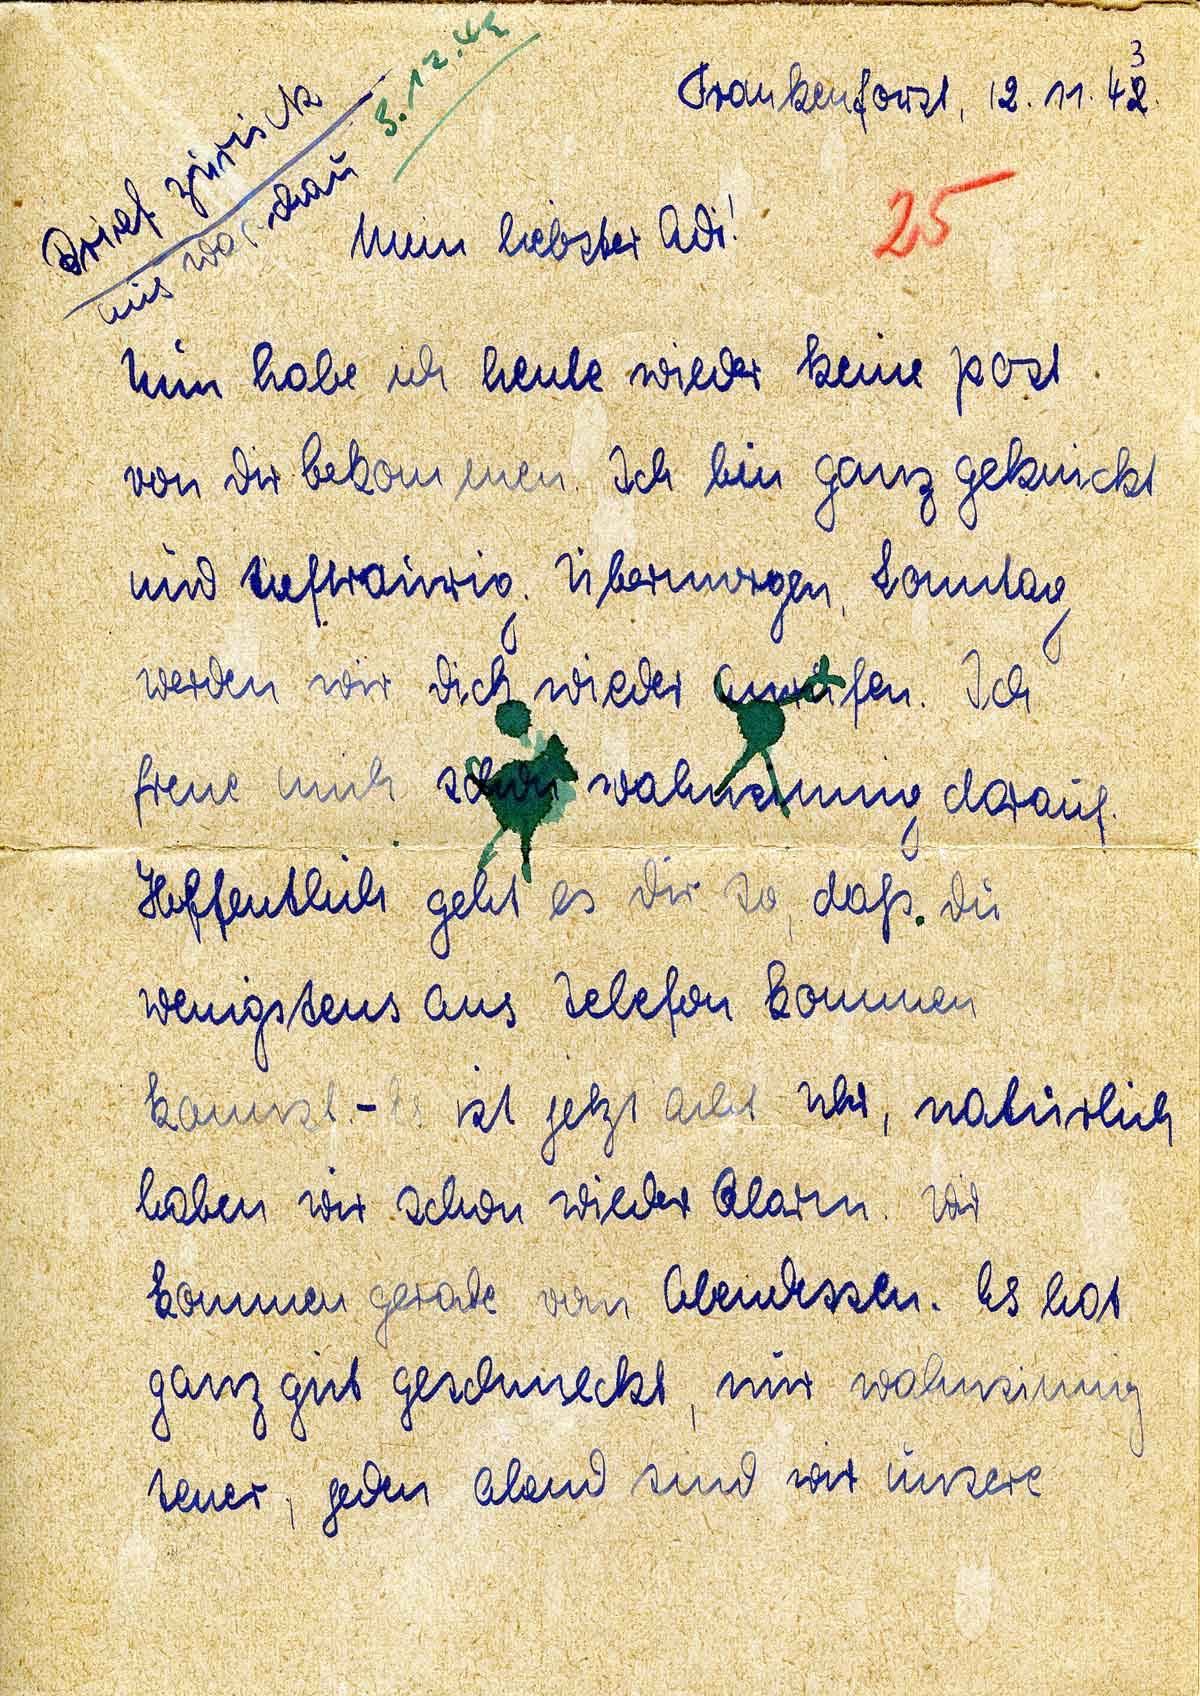 Brief zurück
aus Warschau 3.12.42
Frankenforst, 12.11.42.
3
25
Mein liebster Adi!
Nun habe ich heute wieder keine Post
von dir bekommen. Ich bin ganz geknickt
und tieftraurig. Übermorgen, Sonntag
werden wir dich wieder anrufen. Ich
freue mich schon wahnsinnig darauf.
Hoffentlich geht es dir so, daß du
wenigstens ans Telefon kommen
kannst – Es ist jetzt acht Uhr, natürlich
haben wir schon wieder Alarm. Wir
kommen gerade vom Abendessen. Es hat
ganz gut geschmeckt, nur wahnsinnig
teuer, jeden Abend sind wir unsere